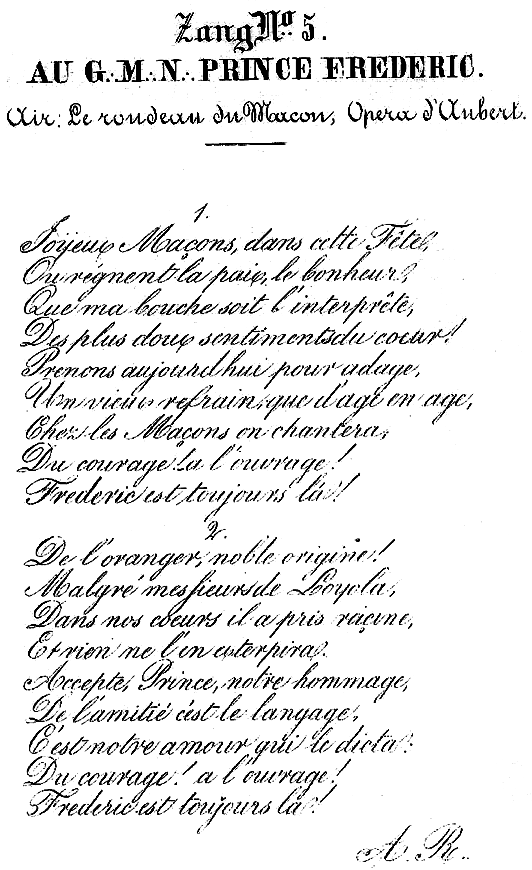 Zang No. 5.
AU G∴M∴N∴ PRINCE FREDERIC.
Air: Le rondeau du Macon, Opera d'Aubert.
1.
Joÿeux Maçons, dans cette Fête,
Ou règnent la paix, le bonheur,
Que ma bouche soit l'interprête,
Des plus doux sentiments du coeur!
Prenons aujourd'hui pour adage,
Un vieux refrain, que d'age en age,
Chez les Maçons on chantera,
Du courage! a l'ouvrage!
Frederic est toujours là!
2.
De l'oranger, noble origine!
Malgré messieurs de Loyola,
Dans nos coeurs il a pris raçine,
Et rien ne l'en exterpira.
Accepte, Prince, notre hommage,
De l'amitié c'est le langage,
C'est notre amour qui le dicta:
Du courage! a l'ouvrage!
Frederic est toujours là!
A. R.